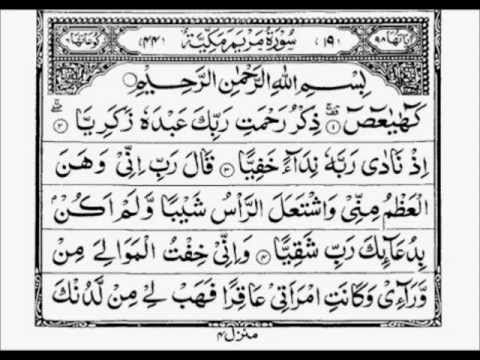 اٰیاتہا ۹۸ (۱۹) سُوْرَةُ مَرْيَمَ مَكِّيَّةٌ (۴۴) رکوعاتہا ۶
بِسْمِ اللهِ الرَّحْمٰنِ الرَّحِيْمِ
كٓهٰيٰعٓصٓ ۚ ۱ ذِكْرُ رَحْمَتِ رَبِّكَ عَبْدَهٗ زَكَرِيَّا ۲
اِذْ نَادٰى رَبَّهٗ نِدَآءً خَفِيًّا ۳ قَالَ رَبِّ اِنِّيْ وَهَنَ
الْعَظْمُ مِنِّيْ وَاشْتَعَلَ الرَّأْسُ شَيْبًا وَّلَمْ اَكُنْۢ
بِدُعَآئِكَ رَبِّ شَقِيًّا ۴ وَاِنِّيْ خِفْتُ الْمَوَالِيَ مِنْ
وَّرَآءِيْ وَكَانَتِ امْرَاَتِيْ عَاقِرًا فَهَبْ لِيْ مِنْ لَّدُنْكَ
منزل ۴